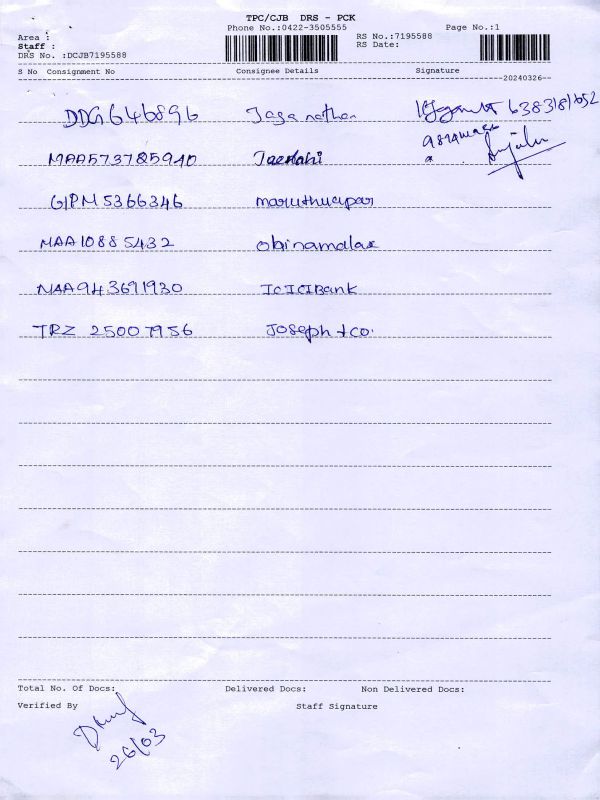 TPC/CJB DRS - PCK
Phone No.:0422-3505555 Page No.:1
Area : RS No.:7195588
Staff : RS Date:
DRS No. :DCJB7195588
S No Consignment No Consignee Details Signature
20240326
DDG646896 Jaganathan 6383181652
MAA573785940
GIPM5366346
MAA10885432
NAA943691930 ICICIBank
TRZ 25007956 Joseph + co.
Total No. Of Docs: Delivered Docs: Non Delivered Docs:
Verified By Staff Signature
26/03